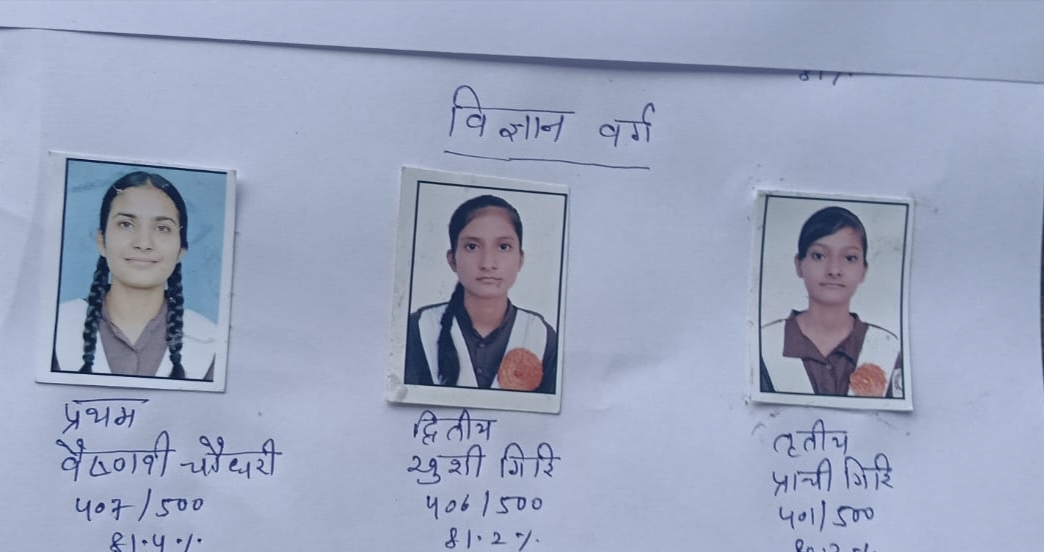 81%
विज्ञान वर्ग
प्रथम
वैष्णवी चौधरी
407/500
81.4%
द्वितीय
खुशी गिरि
406/500
81.2%
तृतीय
प्राची गिरि
401/500
80.2%